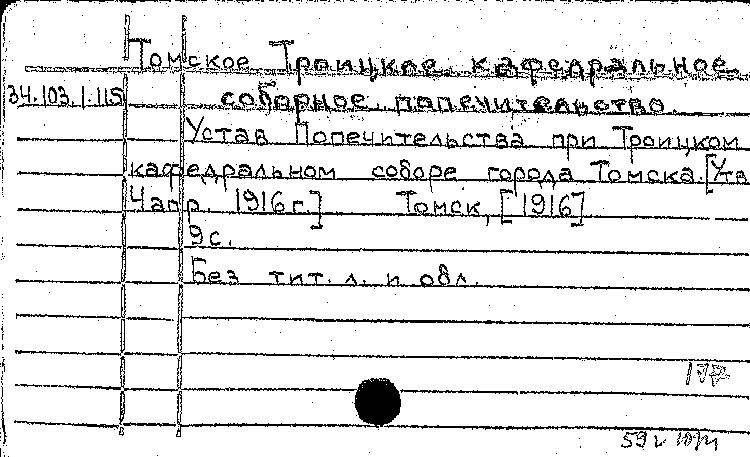 Томское Троицкое кафедральное
34.103.1.115 соборное попечительство.
Устав Попечительства при Троицком
кафедральном соборе города Томска. [Утв.
4 апр. 1916 г.] Томск, [1916]
9 с.
Без тит. л. и обл.
177
59